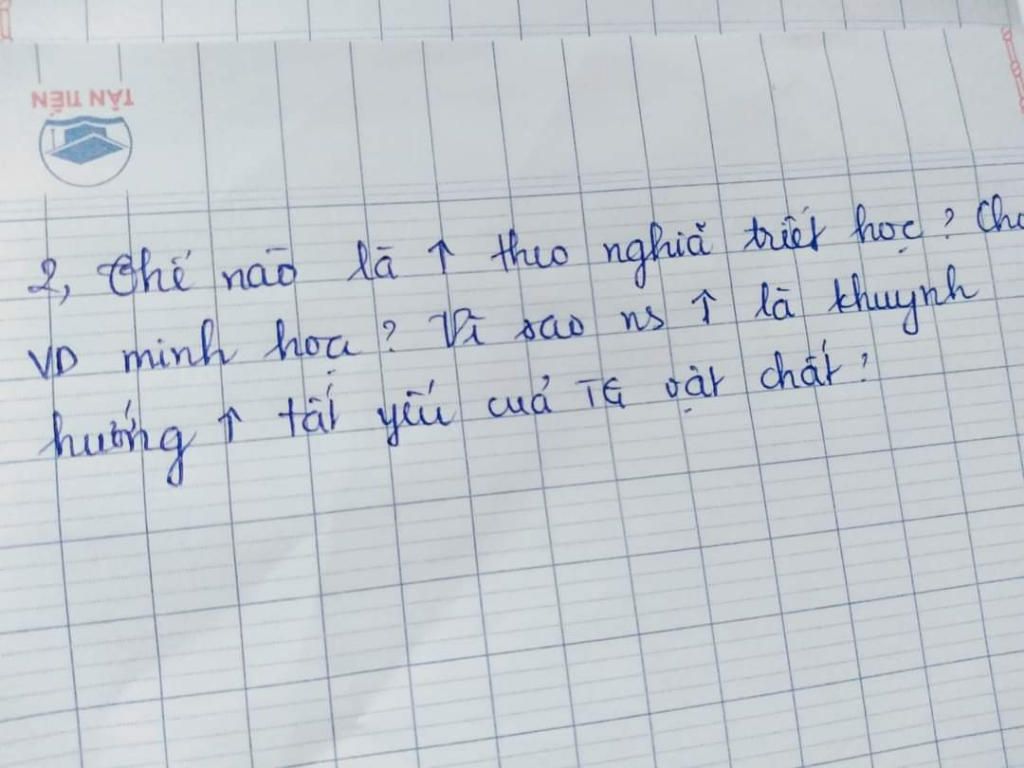 TÂN TIẾN
2, Thế nào là ↑ theo nghiã triết học? Cho
VD minh họa? Vì sao ns ↑ là khuynh
hướng ↑ tất yếu cuả TG vật chất?